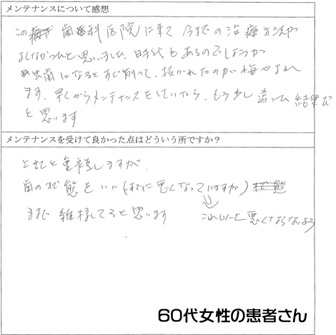 メンテナンスについて感想
この 歯科医院に来て 今までの治療方法が
よくなかったと思いました。時代もあるのでしょうが
虫歯になるとすぐ削って、抜かれたのが悔やまれ
ます。早くからメンテナンスをしていたら、もう少し違った結果だ
と思います
メンテナンスを受けて良かった点はどういう所ですか？
上記と重複しますが、
歯の状態をいい(すでに悪くなってはいますが)状態
まま 維持してると思います
これ以上悪くならないよう
60代女性の患者さん